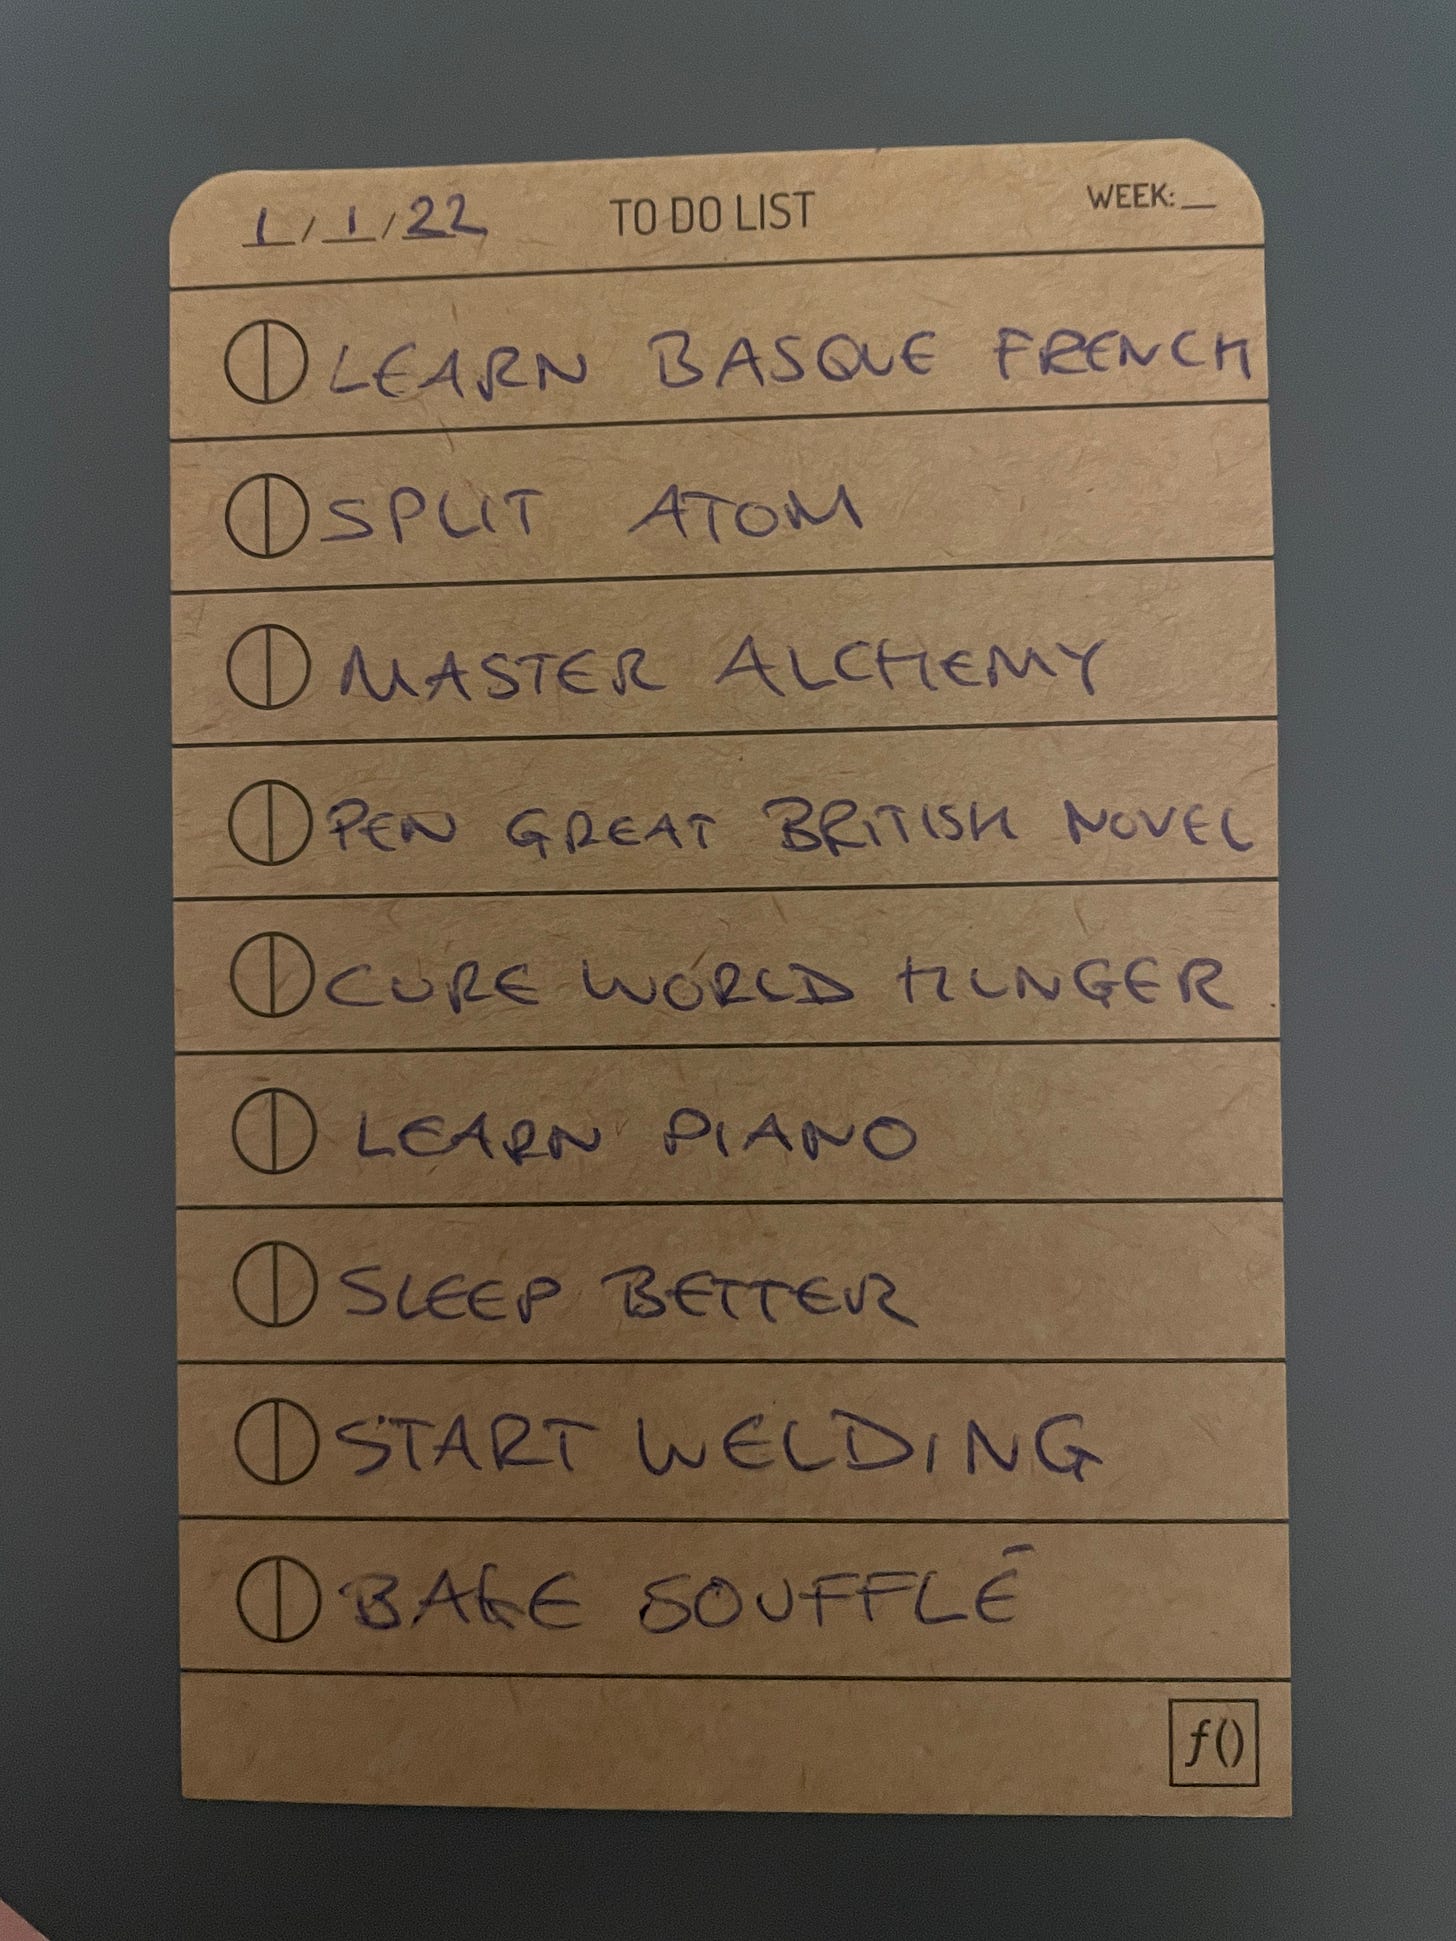 1/1/22 TO DO LIST WEEK:__
LEARN BASQUE FRENCH
SPLIT ATOM
MASTER ALCHEMY
PEN GREAT BRITISH NOVEL
CURE WORLD HUNGER
LEARN PIANO
SLEEP BETTER
START WELDING
BAKE SOUFFLÉ
f()